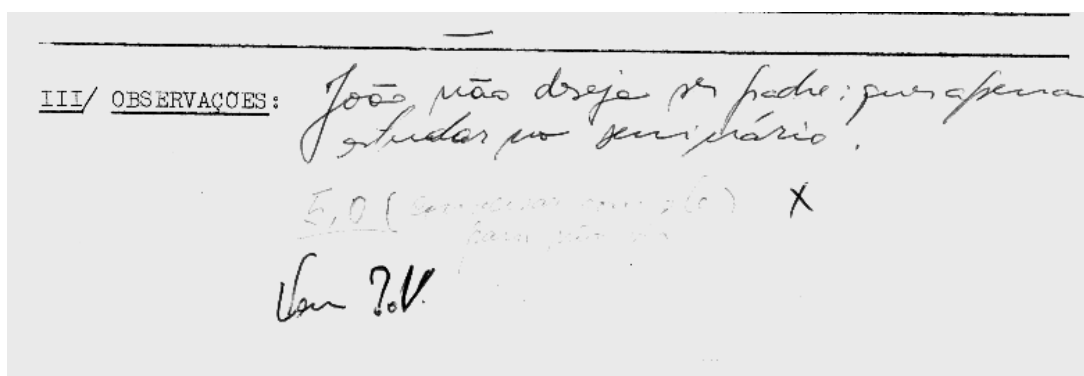 III/ OBSERVAÇÕES: João não deseja ser padre; quer apena
estudar no seminário.
5,0 (
X
Vem P.V.